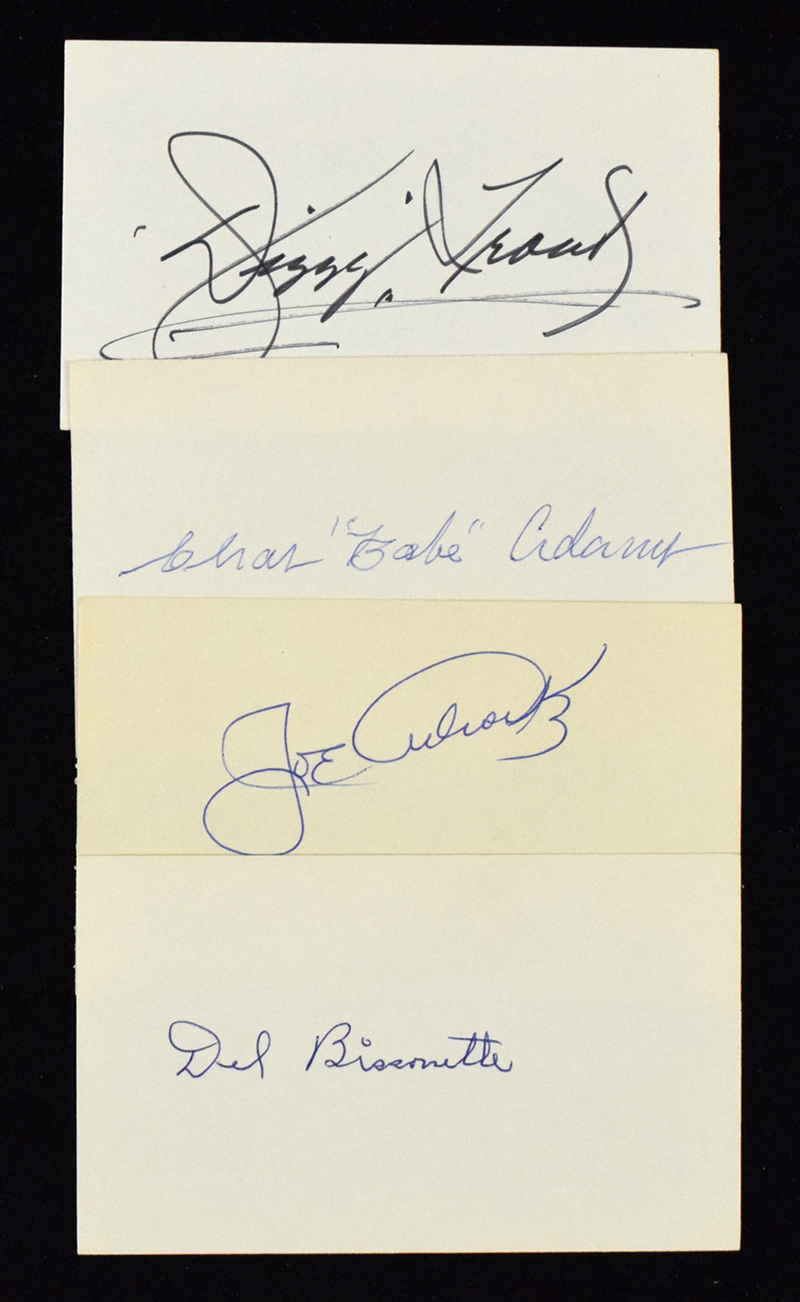 "Dizzy" Trout
Chas "Babe" Adams
Joe Adcock
Del Bissonette